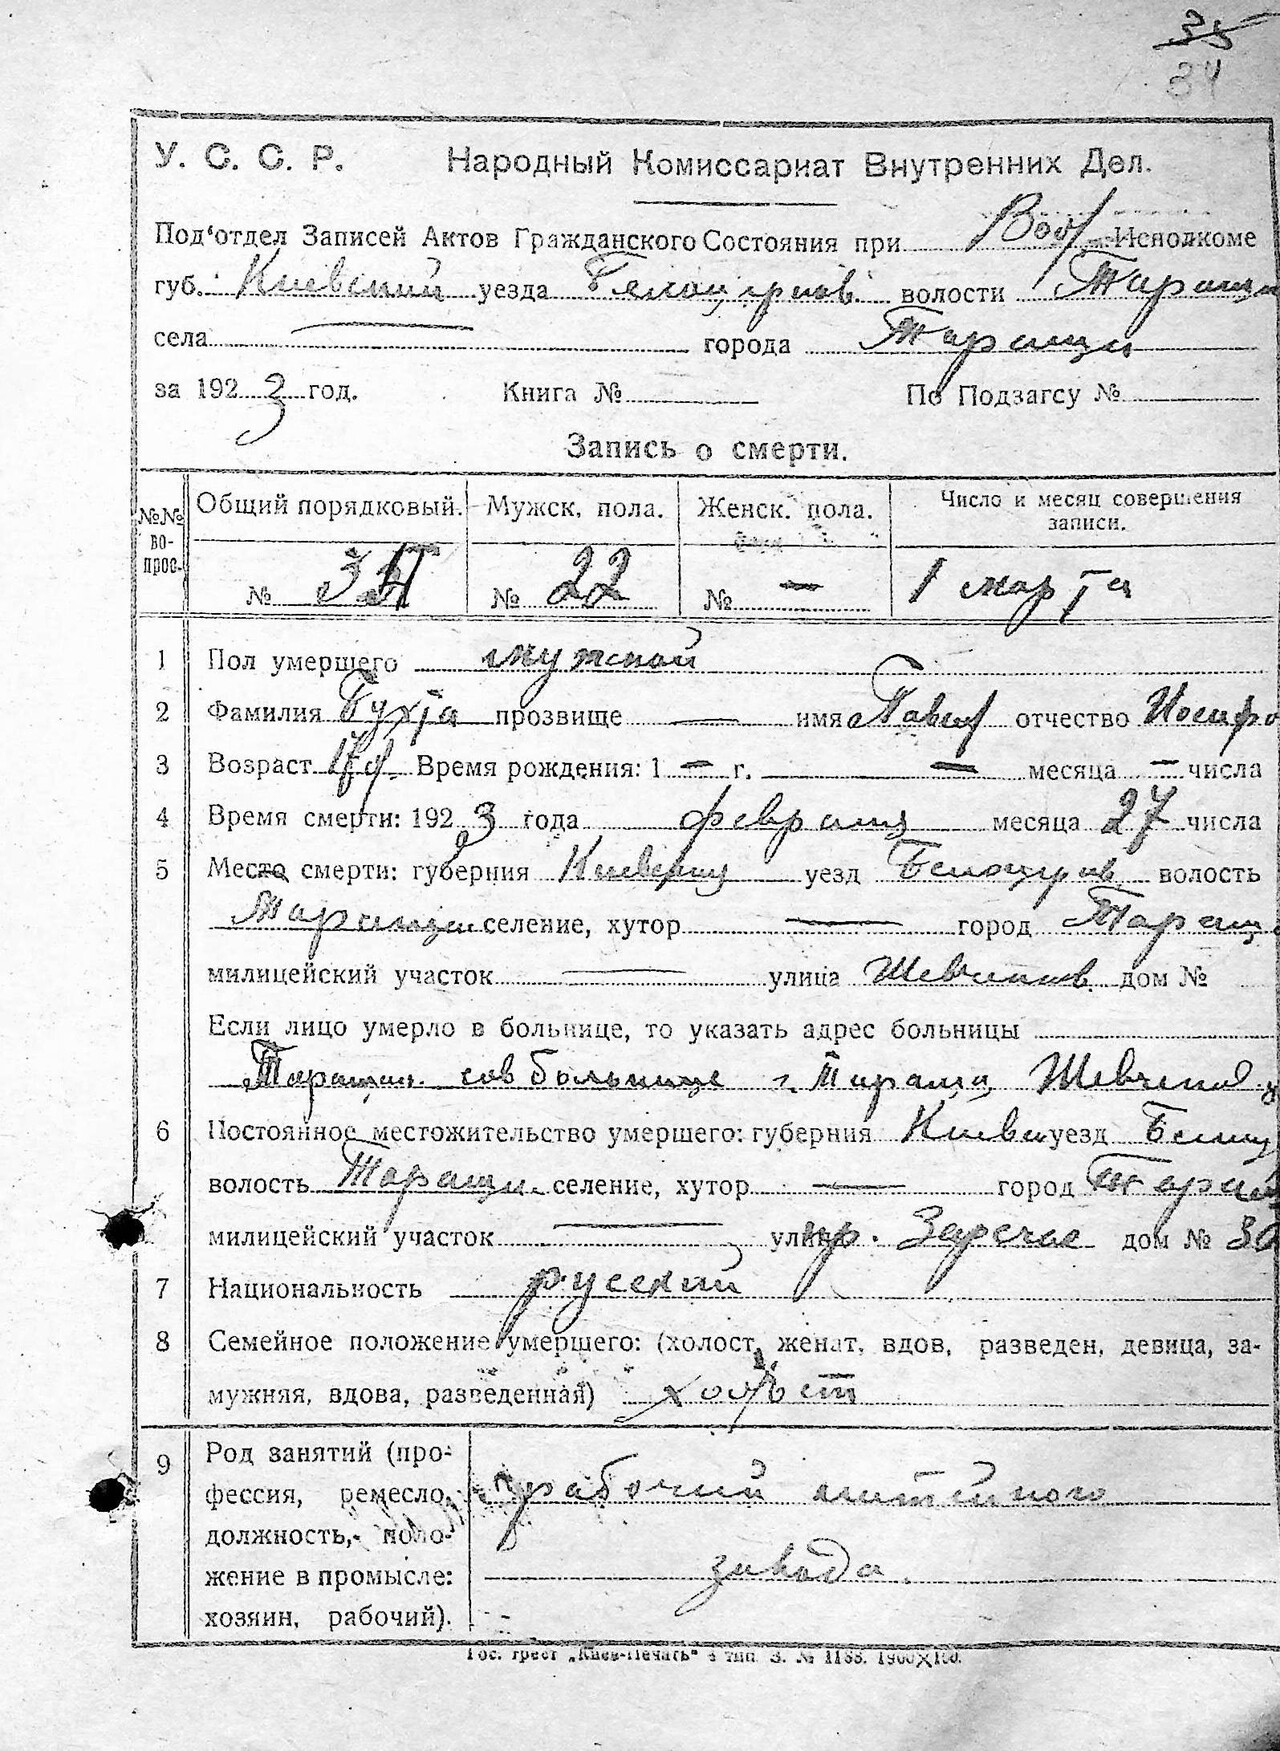 35
34
У. С. С. Р. Народный Комиссариат Внутренних Дел.
Под'отдел Записей Актов Гражданского Состояния при Вол Исполкоме
губ. Киевский уезда Белоцерков волости Таращан
села города Таращи
за 1923 год. Книга № По Подзагсу №
Запись о смерти.
№№ вопрос. Общий порядковый. Мужск. пола. Женск. пола. Число и месяц совершения
записи.
№ № 22 № — 1 марта
1 Пол умершего мужской
2 Фамилия Бухта прозвище — имя Павел отчество Иосифо
3 Возраст Время рождения: 1 — г. — месяца — числа
4 Время смерти: 1923 года февраля месяца 27 числа
5 Место смерти: губерния Киевская уезд Белоцерков волость
Таращан селение, хутор — город Таращ
милицейский участок — улица Шевченков дом №
Если лицо умерло в больнице, то указать адрес больницы
Таращан. сов больнице г. Тараща Шевченков
6 Постоянное местожительство умершего: губерния Киевск уезд Белоц
волость Таращан селение, хутор — город Таращ
милицейский участок — улица пр. Заречье дом № 30
7 Национальность русский
8 Семейное положение умершего: (холост, женат, вдов, разведен, девица, за-
мужняя, вдова, разведенная) холост
9 Род занятий (про-
фессия, ремесло, рабочий литейного
должность, поло-
жение в промысле: завода.
хозяин, рабочий).
Гос. трест „Киев-Печать" 4 тип. З. № 1188. 1900×100.